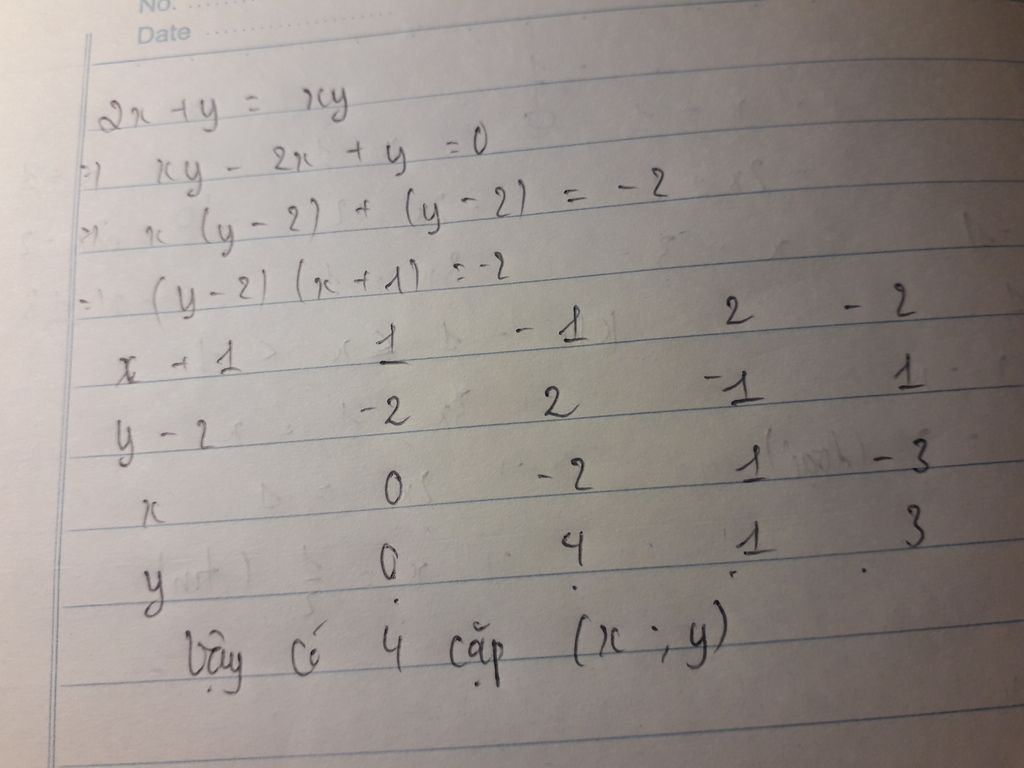 No. ........
Date ....................
2x + y = xy
=> xy - 2x + y = 0
=> x (y - 2) + (y - 2) = -2
= (y - 2) (x + 1) = -2
x + 1 1 - 1 2 - 2
y - 2 -2 2 -1 1
x 0 - 2 1 - 3
y 0 4 1 3
Vậy có 4 cặp (x ; y)